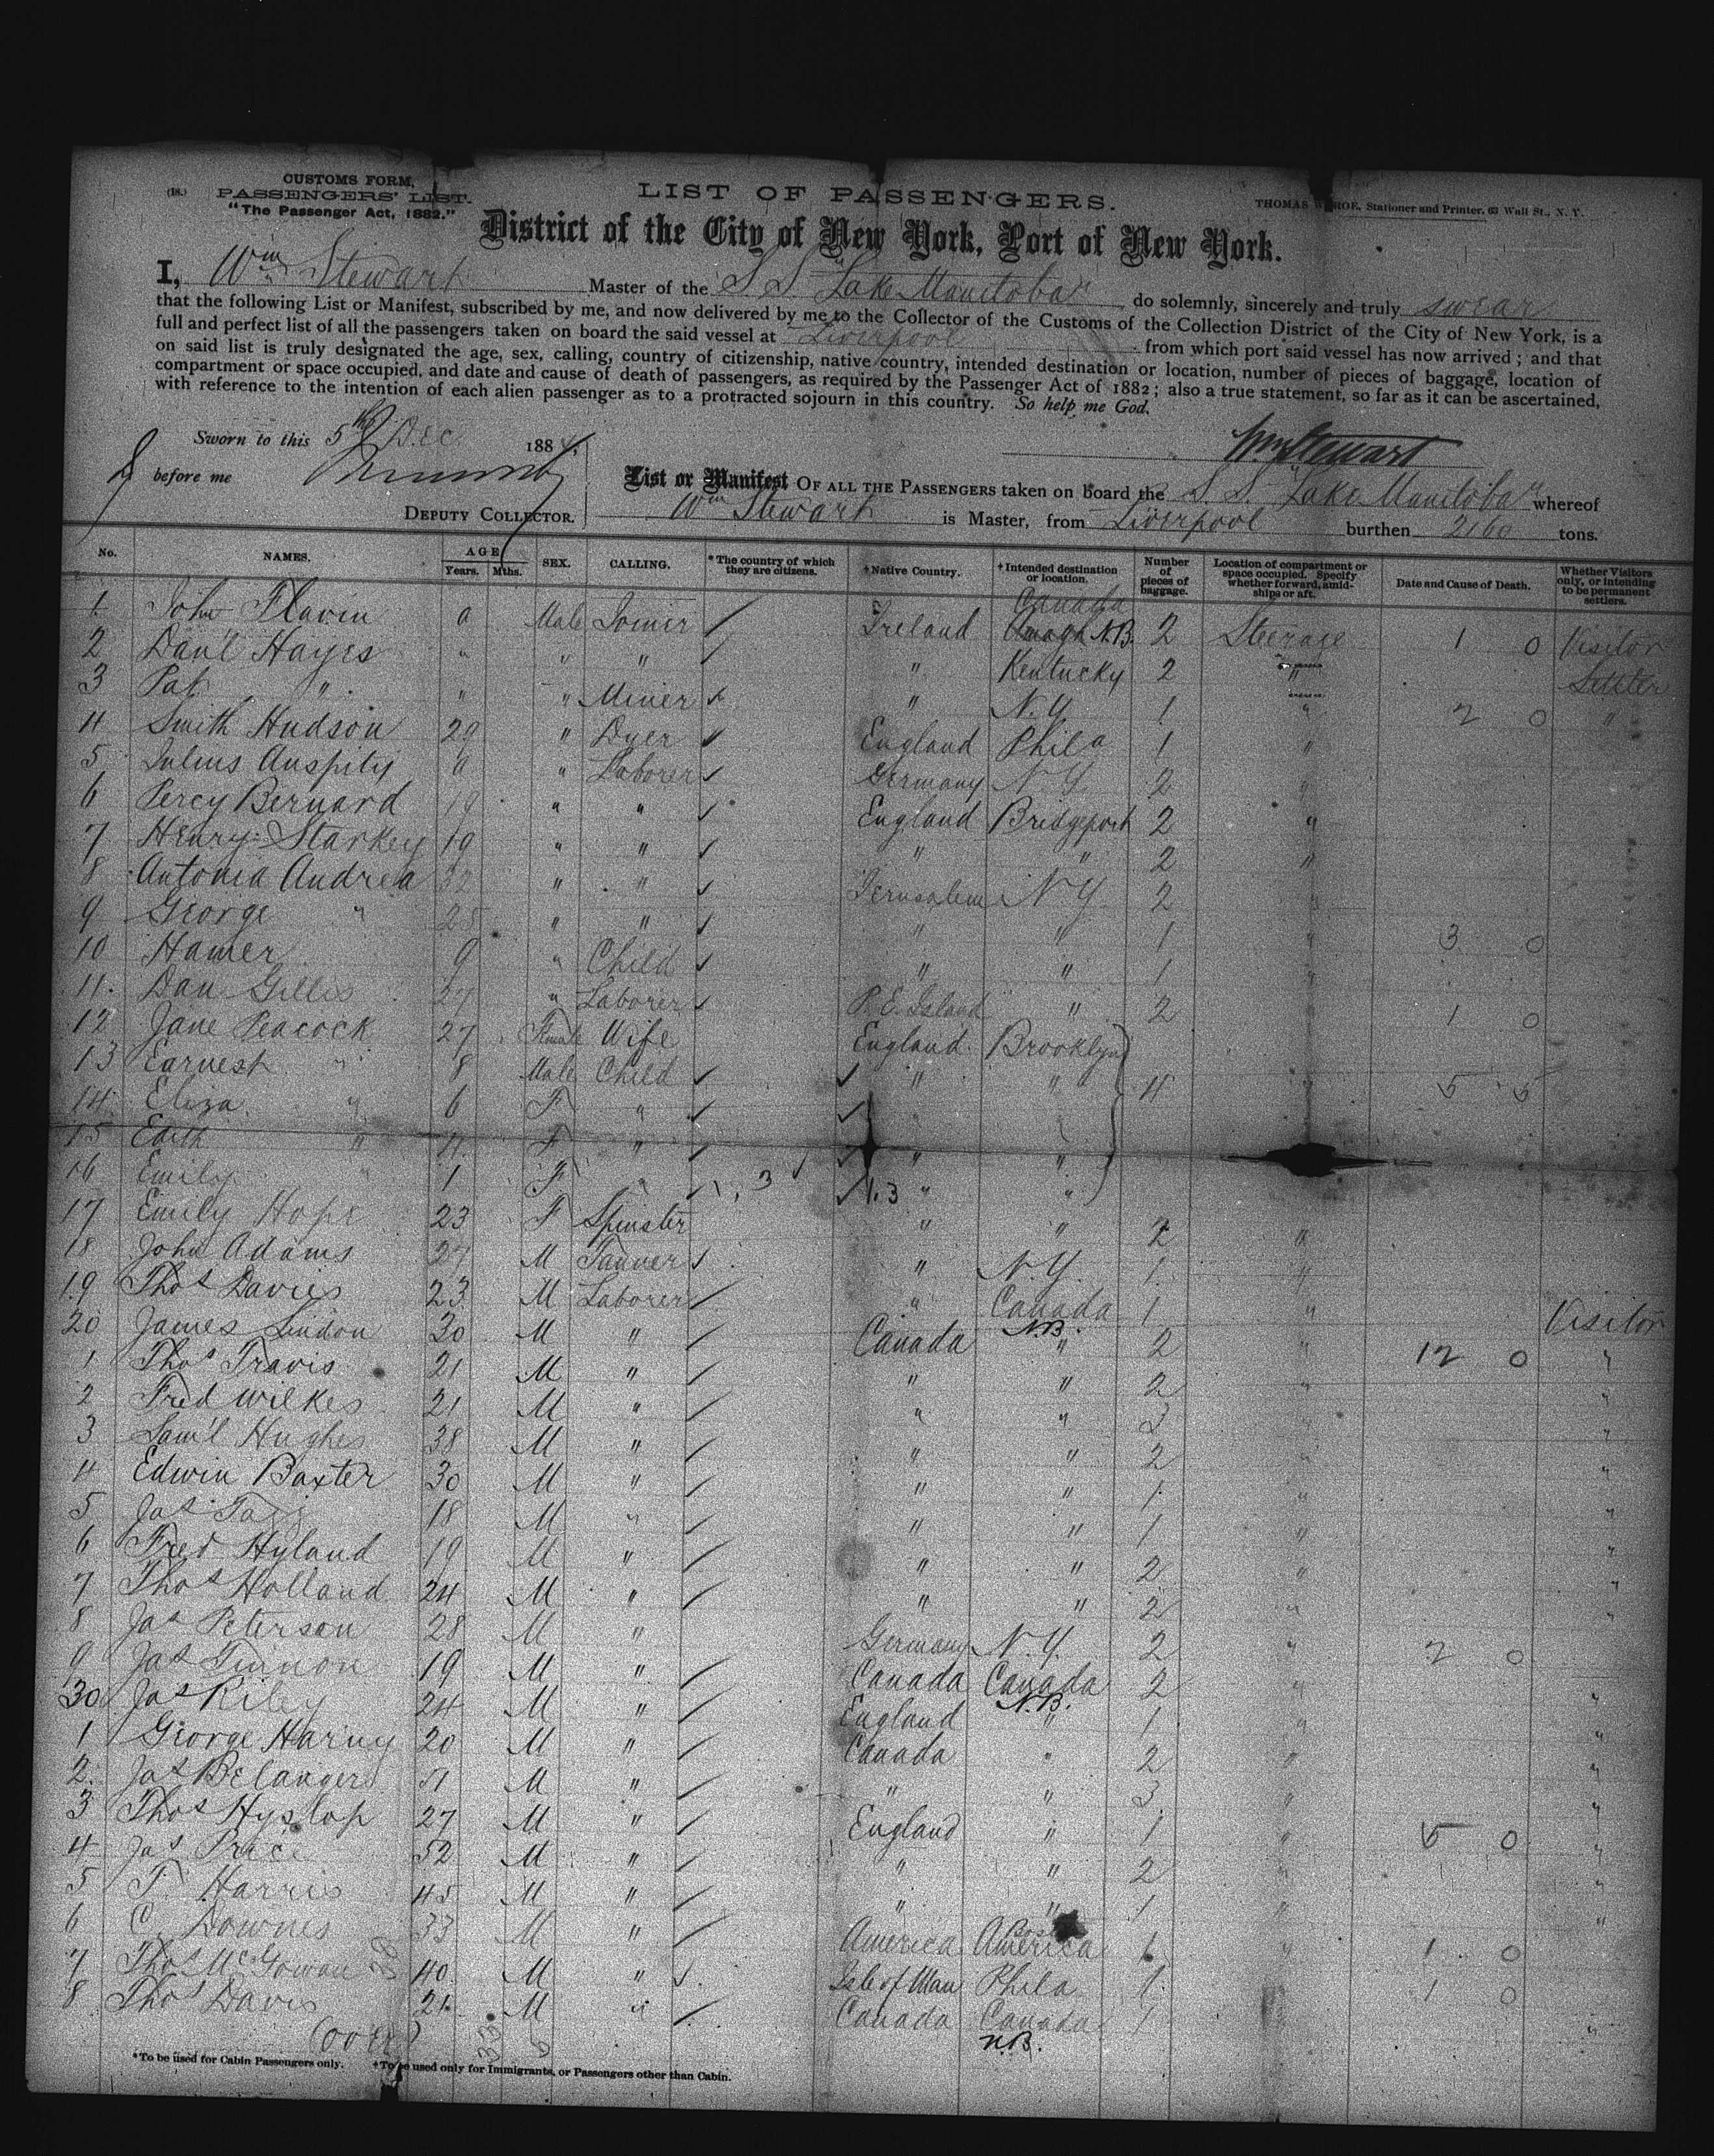 CUSTOMS FORM,
(18.) PASSENGERS' LIST.
"The Passenger Act, 1882."
LIST OF PASSENGERS.
THOMAS Stationer and Printer, 63 Wall St., N. Y.
District of the City of New York, Port of New York.
I, Wm Stewart Master of the S.S. "Lake Manitoba" do solemnly, sincerely and truly swear
that the following List or Manifest, subscribed by me, and now delivered by me to the Collector of the Customs of the Collection District of the City of New York, is a
full and perfect list of all the passengers taken on board the said vessel at Liverpool from which port said vessel has now arrived; and that
on said list is truly designated the age, sex, calling, country of citizenship, native country, intended destination or location, number of pieces of baggage, location of
compartment or space occupied, and date and cause of death of passengers, as required by the Passenger Act of 1882; also a true statement, so far as it can be ascertained,
with reference to the intention of each alien passenger as to a protracted sojourn in this country. So help me God.
Sworn to this 5th Dec 1884
Wm Stewart
before me
DEPUTY COLLECTOR.
List or Manifest OF ALL THE PASSENGERS taken on board the S.S. "Lake Manitoba" whereof
Wm Stewart is Master, from Liverpool burthen 2160 tons.
No. NAMES. AGE Years. Mths. SEX. CALLING. *The country of which they are citizens. †Native Country. †Intended destination or location. Number of pieces of baggage. Location of compartment or space occupied. Specify whether forward, amidships or aft. Date and Cause of Death. Whether Visitors only, or intending to be permanent settlers.
1 John Flavin a Male Joiner Ireland Canada N.B. 2 Steerage 1 0 Visitor
2 Danl Hayes " " " " Kentucky 2 " Settler
3 Pat " " " Miner " N.Y. 1 " 2 0 "
4 Smith Hudson 29 " Dyer England Phila 1 "
5 Julius a " Laborer Germany N.Y. 2 "
6 Percy Bernard 19 " " England Bridgeport 2 "
7 Henry Starkey 19 " " " " 2 "
8 Antonia Andrea 32 " " Jerusalem N.Y. 2 "
9 George " 25 " " " " 1 " 3 0
10 Hamer 9 " Child " " 1 "
11 Dan Gillis 27 " Laborer P.E. Island " 2 1 0
12 Jane Peacock 27 Female Wife England Brooklyn
13 Earnest " 8 Male Child " " 4 " 5 5
14 Eliza " 6 F " " "
15 Edith " 4 F " " "
16 Emily " 1 F " 1, 3 1.3 " "
17 Emily Hope 23 F Spinster " " 2 "
18 John Adams 27 M Tanner " N.Y. 1 "
19 Thos Davies 23 M Laborer " Canada 1 " Visitor
20 James Lindon 30 M " Canada N.B. " 2 " 12 0 "
1 Thos Travis 21 M " " " 2 " "
2 Fred Wilkes 21 M " " " 3 " "
3 Saml Hughes 38 M " " " 2 " "
4 Edwin Baxter 30 M " " " 1 " "
5 Jas 18 M " " " 1 " "
6 Fred Hyland 19 M " " " 2 " "
7 Thos Holland 24 M " " " 2 " "
8 Jas Peterson 28 M " Germany N.Y. 2 " 2 0
9 Jas 19 M " Canada Canada 2 " "
30 Jas Riley 24 M " England N.B. " 1 " "
1 George Harvy 20 M " Canada " 2 " "
2 Jas Belanger 51 M " " " 3 " "
3 Thos Hyslop 27 M " England " 1 " 5 0 "
4 Jas Price 52 M " " " 2 " "
5 T. Harris 45 M " " " 1 " "
6 C. Downes 33 M " America America 1 " 1 0
7 Thos McGowan 40 M " Isle of Man Phila 1 " 1 0
8 Thos Davis 21 M " Canada Canada 1 " "
(over) N.B.
*To be used for Cabin Passengers only. †To be used only for Immigrants, or Passengers other than Cabin.